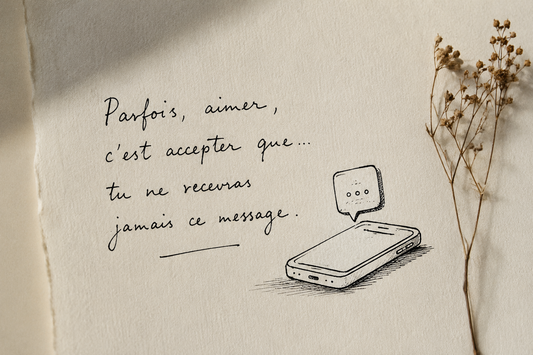 Parfois, aimer,
c'est accepter que...
tu ne recevras
jamais ce message.